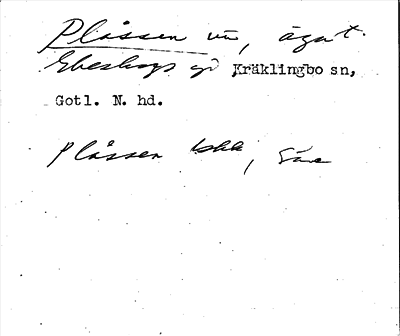 Plåssen vu, ägat
Ebeskogs gd Kräklingbo sn,
Gotl. N. hd.
Plåssen